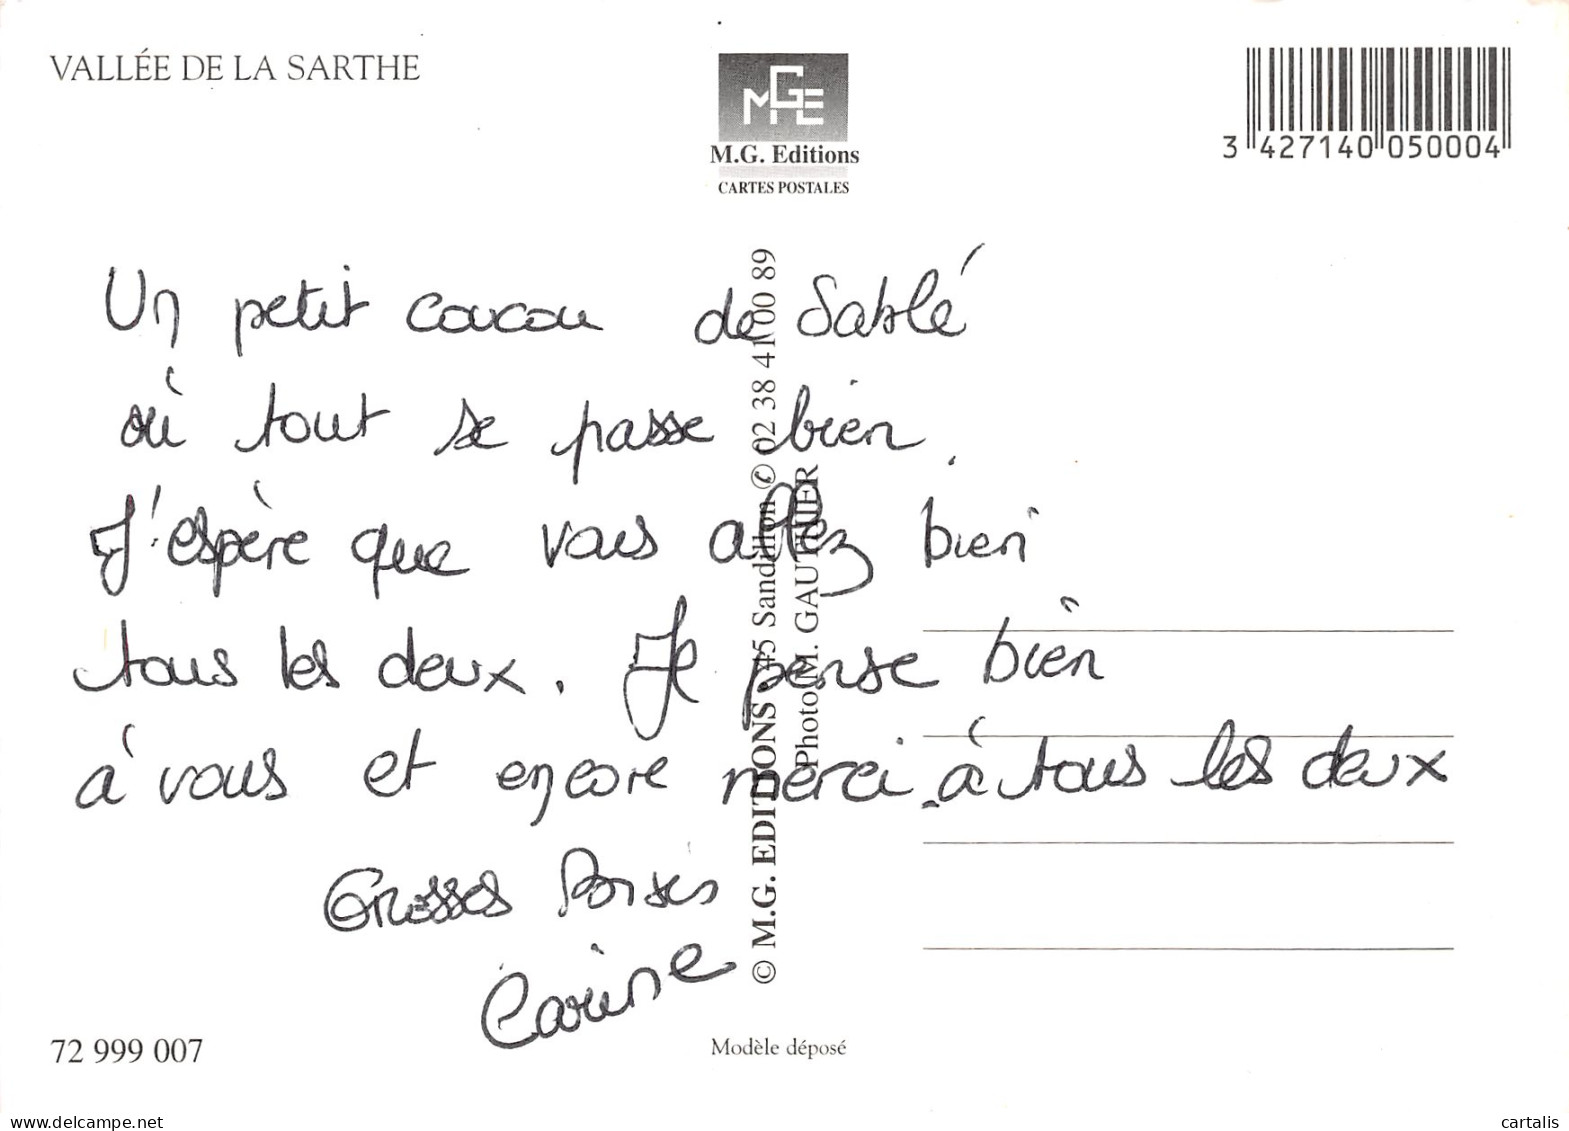 VALLÉE DE LA SARTHE
MGE
M.G. Editions
CARTES POSTALES
3 427140 050004
Un petit coucou de Sablé
où tout se passe bien.
J'espère que vous allez bien
tous les deux. Je pense bien
à vous et encore merci à tous les deux
Grosses Bises
Carine
© M.G. EDITIONS 45 Sandillon ✆ 02 38 41 00 89
Photo M. GAUTHIER
72 999 007
Modèle déposé
www.delcampe.net
cartalis